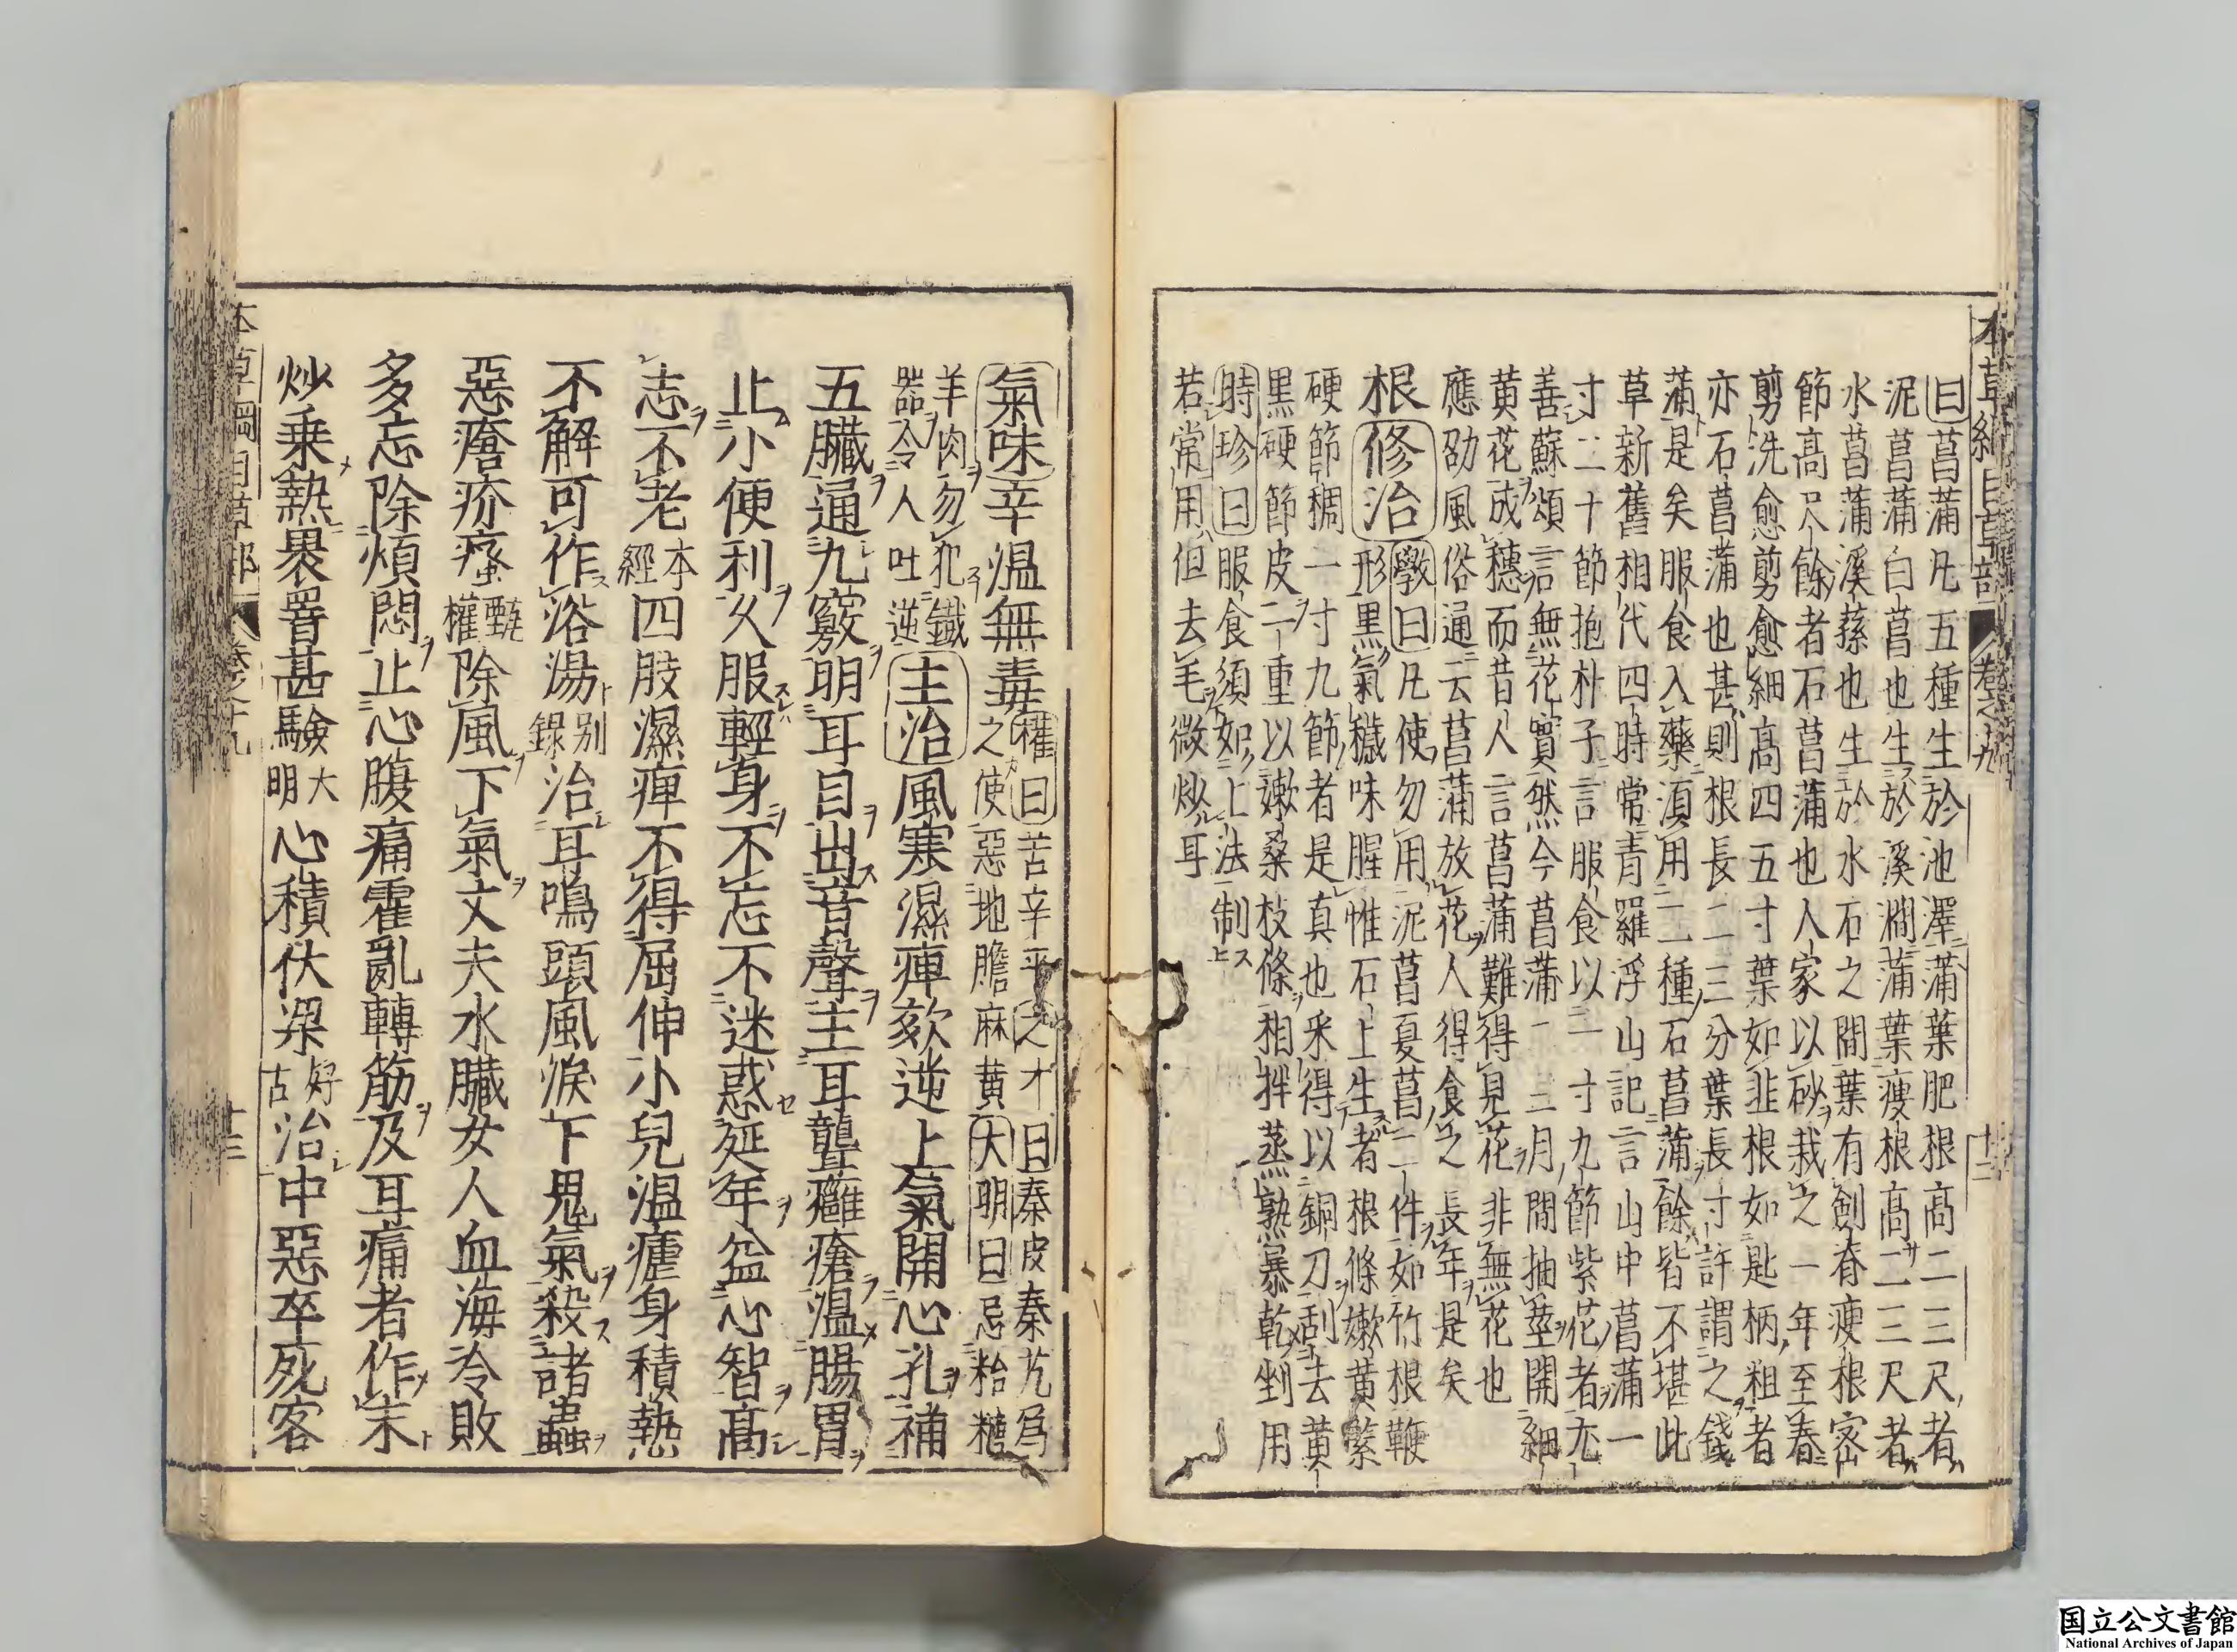 本草綱目草部 卷之十九 十二
曰菖蒲凡五種生於池澤蒲葉肥根高二三尺者
泥菖蒲白菖也生於溪澗蒲葉瘦根高二三尺者
水菖蒲溪蓀也生於水石之間葉有劍脊瘦根密
節高尺餘者石菖蒲也人家以砂栽之一年至春
剪洗愈剪愈細高四五寸葉如韭根如匙柄粗者
亦石菖蒲也甚則根長二三分葉長寸許謂之錢
蒲是矣服食入藥湏用二種石菖蒲餘皆不堪此
草新舊相代四時常青羅浮山記言山中菖蒲一
寸二十節抱朴子言服食以一寸九節紫花者尤
善蘇頌言無花實然今菖蒲二三月間抽莖開細
黃花成穗而昔人言菖蒲難得見花非無花也
應劭風俗通云菖蒲放花人得食之長年是矣
根修治斆曰凡使勿用泥菖夏菖二件如竹根鞭
形黑氣穢味腥惟石上生者根條嫩黃緊
硬節稠一寸九節者是真也采得以銅刀刮去黃
黑硬節皮一重以嫩桑枝條相拌蒸熟暴乾剉用
時珍曰服食須如上法制
若常用但去毛微炒耳
氣味辛溫無毒權曰苦辛平之才曰秦皮秦艽爲
之使惡地膽麻黃大明曰忌粭糖
羊肉勿犯鐵
器令人吐逆主治風寒濕痺欬逆上氣開心孔補
五臟通九竅明耳目出音聲主耳聾癰瘡溫腸胃
止小便利久服輕身不忘不迷惑延年益心智高
志不老本經四肢濕痺不得屈伸小兒溫瘧身積熱
不解可作浴湯別錄治耳鳴頭風淚下鬼氣殺諸蟲
惡瘡疥瘙甄權除風下氣丈夫水臟女人血海冷敗
多忘除煩悶止心腹痛霍亂轉筋及耳痛者作末
炒乘熱裹罯甚驗大明心積伏梁好古治中惡卒死客
本草綱目草部 卷之十九 十三
国立公文書館
National Archives of Japan